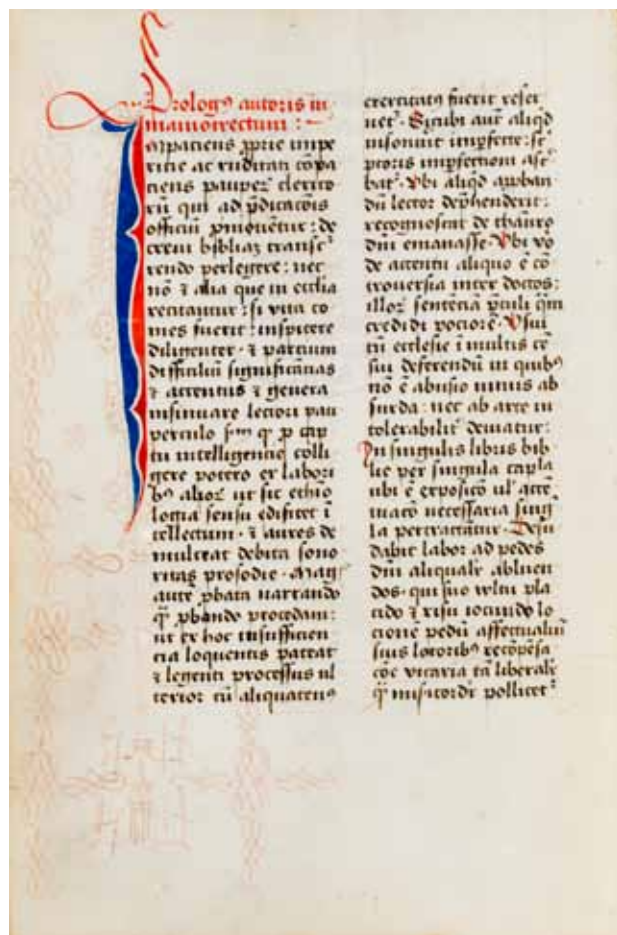 Prologꝰ autoris in
mamotrectum :
Impaciens ꝓprie impe
ricie ac ruditati cōpa
ciens pauperꝫ clerico
rū qui ad p̄dicacōis
officiū ꝓmouētur : de
creui bibliaꝫ transcᵗ
rendo perlegere : nec
nō ⁊ alia que in ecclia
recitantur : si vita co
mes fuerit : inspicere
diligenter · ⁊ partium
difficiliū significācias
⁊ accentus ⁊ genera
insinuare lectori pau
perculo ꝓ cap
tu intelligencie colli
gere potero ex labori
bꝰ alioꝝ ut sic ethio
logia sensu edificet ī
tellectum · ⁊ aures de
mulceat debita sono
ritas prosodie · Mag
autē ꝓbata narrando
q̄ ꝓbando procedam :
ut ex hoc insufficien
cia loquentis pateat
⁊ legenti processus ul
terior cū aliquatenꝰ
exercitatꝰ fuerit reser
uetᵘ · Sicubi aut aliqd
insonuit imperfecte : sc
ptoris imperfectioni asc
batᵘ · Ubi aliqd approban
dū lector dep̄henderit :
recognoscat de thauro
dni emanasse · Ubi vo
de accentu aliquo ē cō
trouersia inter doctos :
illoꝝ sentēciā
credidi pociorē · Usui
tn̄ ecclesie ī multis cē
sui deferendū in quibꝰ
nō ē abusio nimis ab
surda : nec ab arte in
tolerabilit deuiatur :
In singulis libris bib
lie per singula capla
ubi ē exposicō ul accē
tuacō necessaria sing
la pertractātur · Desu
dabit labor ad pedes
dni aliqualr abluen
dos · qui suo vultu pla
cido ⁊ risu iocundo lo
cione pedū affectualiū
suis lotoribꝰ recōpēsa
cōe vicaria tā liberalr
q̄ misicordr pollicetᵘ